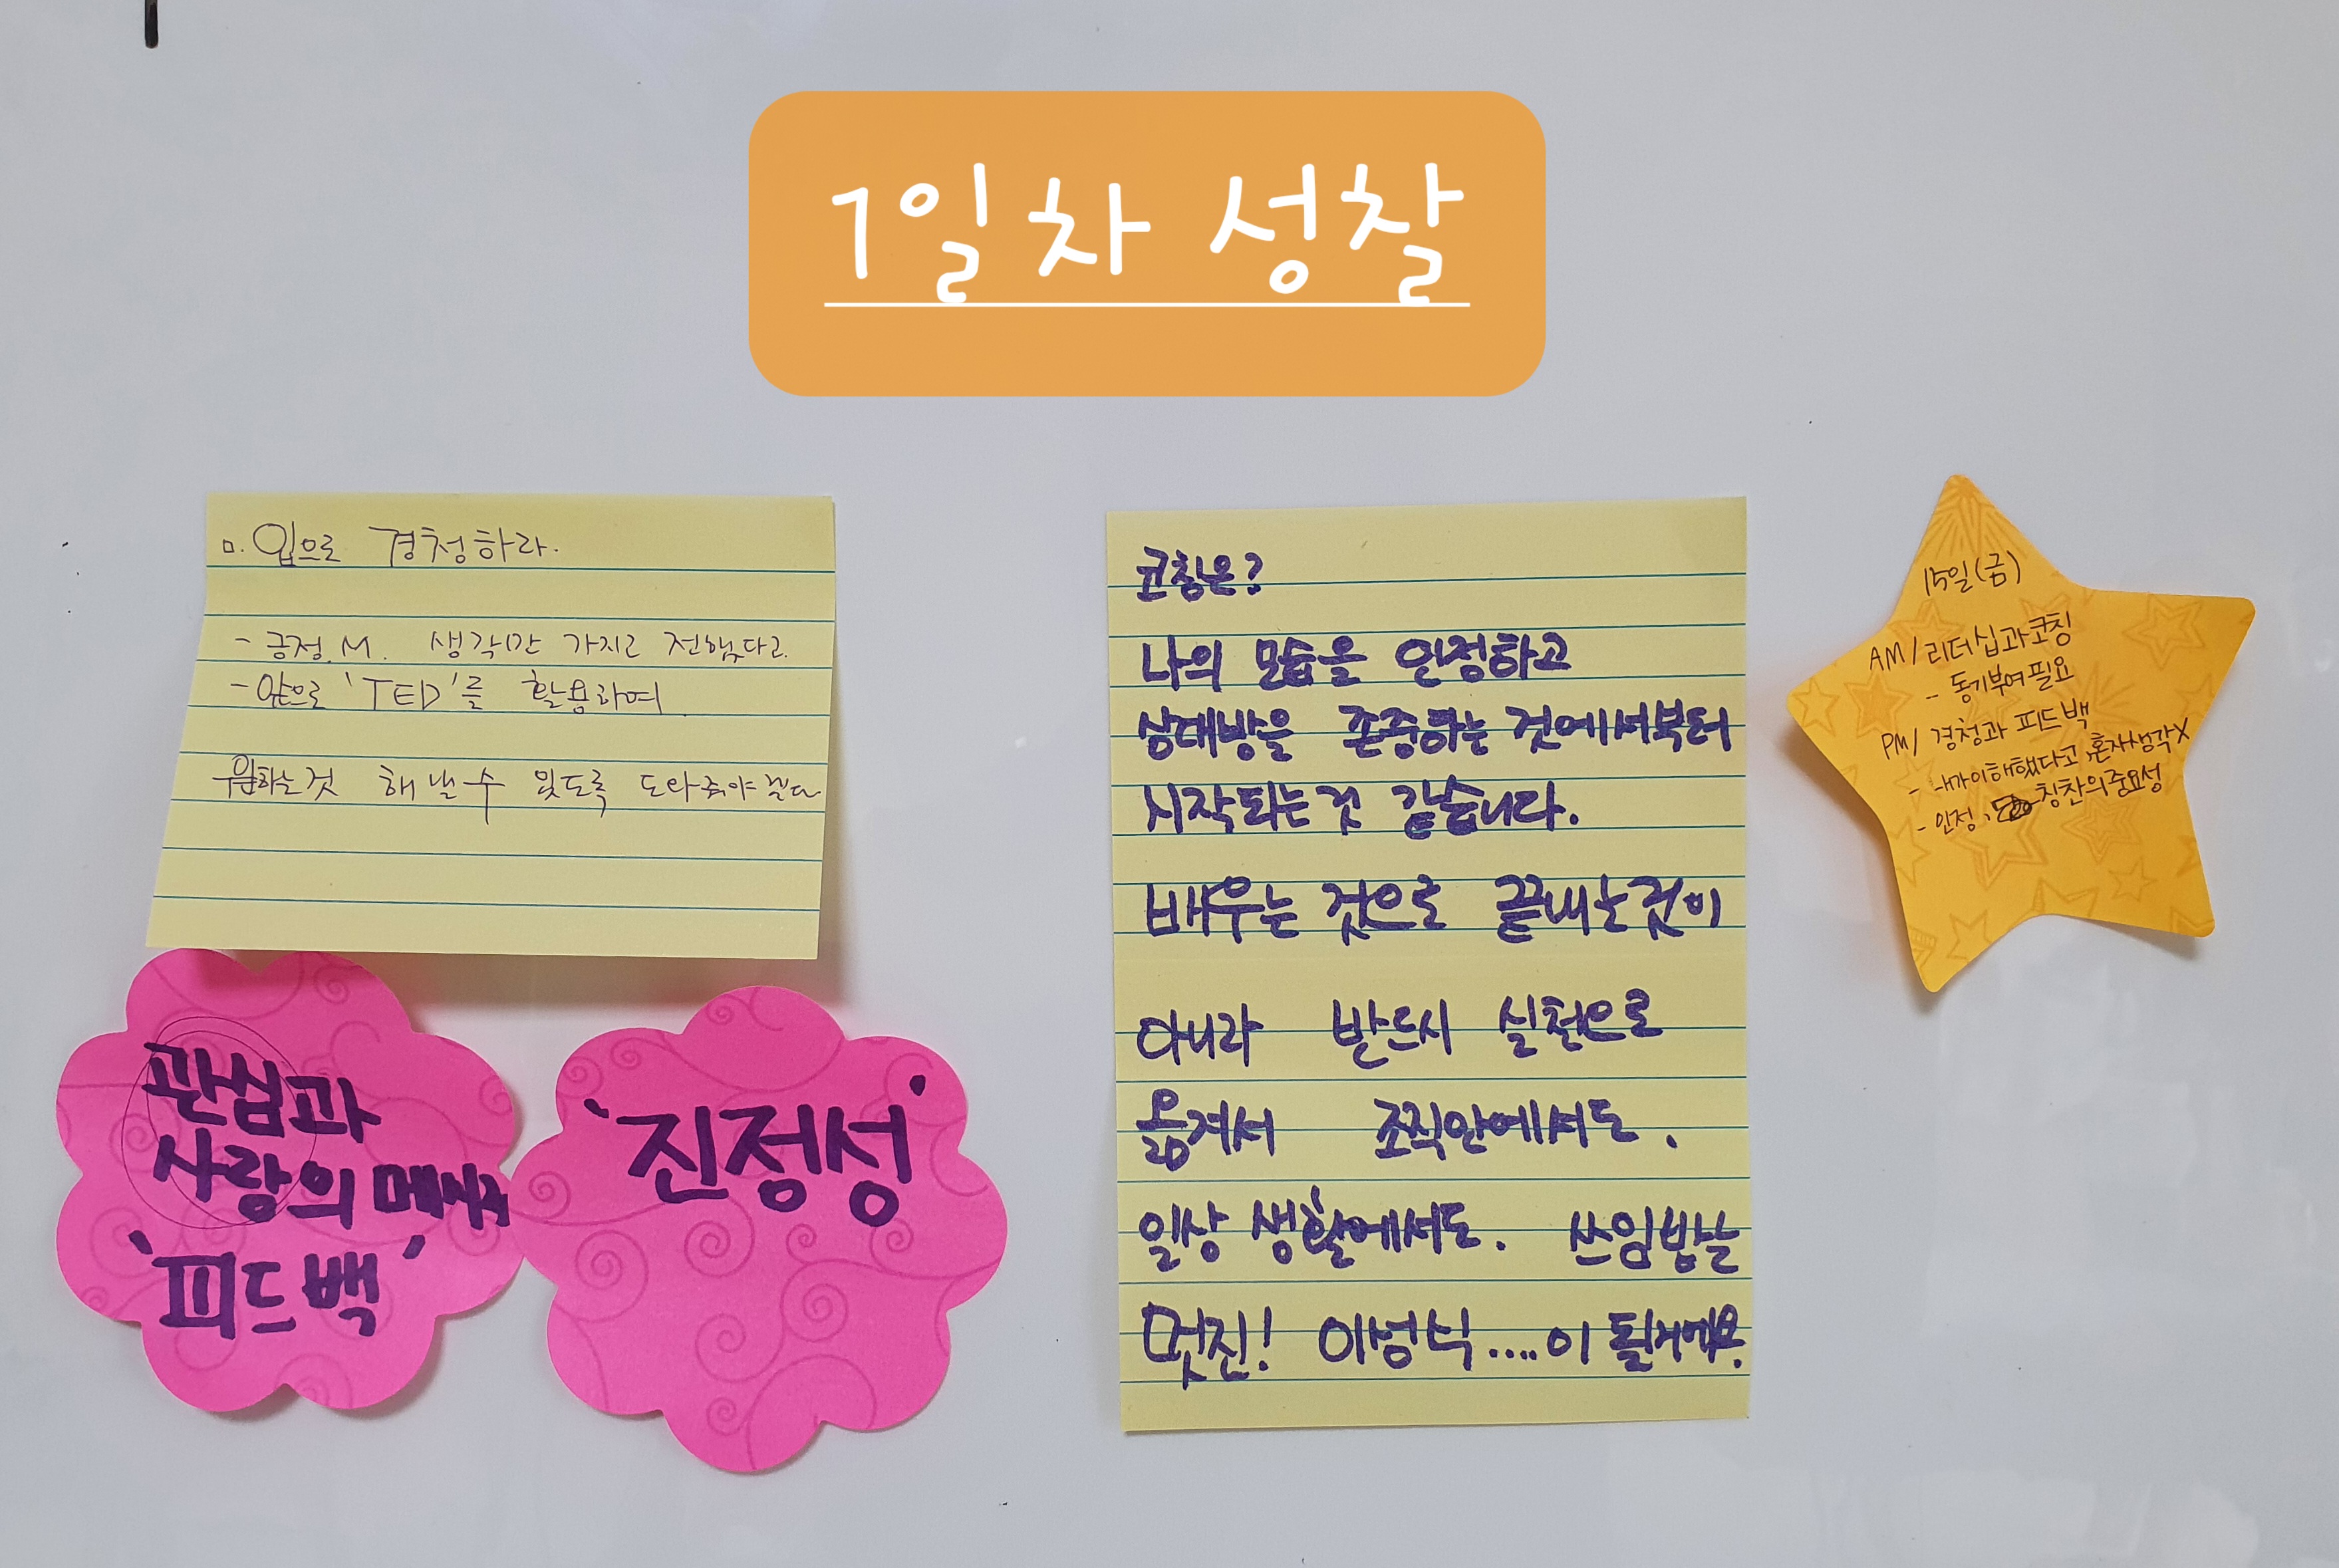 1일차 성찰
ㅁ. 입으로 경청하라.
- 긍정.M. 생각만 가지고 전했다고
- 앞으로 'TED'를 활용하여
원하는것 해낼수 있도록 도와줘야겠다
관심과
사랑의 메시지
'피드백'
'진정성'
코칭은?
나의 모습을 인정하고
상대방을 존중하는 것에서부터
시작되는것 같습니다.
배우는 것으로 끝내는것이
아니라 반드시 실천으로
옮겨서 조직안에서도.
일상 생활에서도. 쓰임받는
멋진! 이성식....이 될거에요.
15일(금)
AM/리더십과코칭
- 동기부여필요
PM/ 경청과 피드백
- 내가이해했다고,혼자생각X
- 인정, 칭찬의중요성